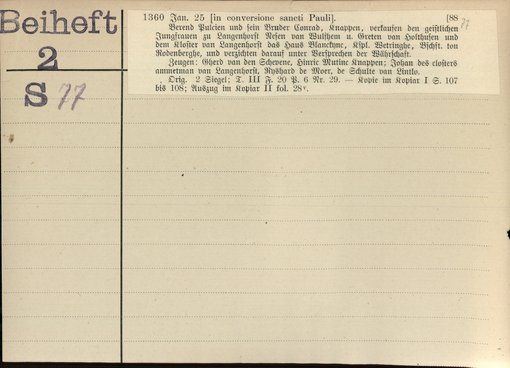 Beiheft
2
S 77
1360 Jan. 25 [in conversione sancti Pauli]. [88
77
Berend Pulcien und sein Bruder Conrad, Knappen, verkaufen den geistlichen
Jungfrauen zu Langenhorst Nesen van Wulfhem u. Greten van Holthusen und
dem Kloster van Langenhorst das Haus Blanckync, Kspl. Wetringhe, Bschft. ton
Rodenberghe, und verzichten darauf unter Versprechen der Währschaft.
Zeugen: Gherd van den Schevene, Hinric Mutinc Knappen; Johan des closters
ammetman van Langenhorst, Ryshard de Moer, de Schulte van Lintlo.
Orig. 2 Siegel; T. III F. 20 P. 6 Nr. 29. — Kopie im Kopiar I S. 107
bis 108; Auszug im Kopiar II fol. 28v.